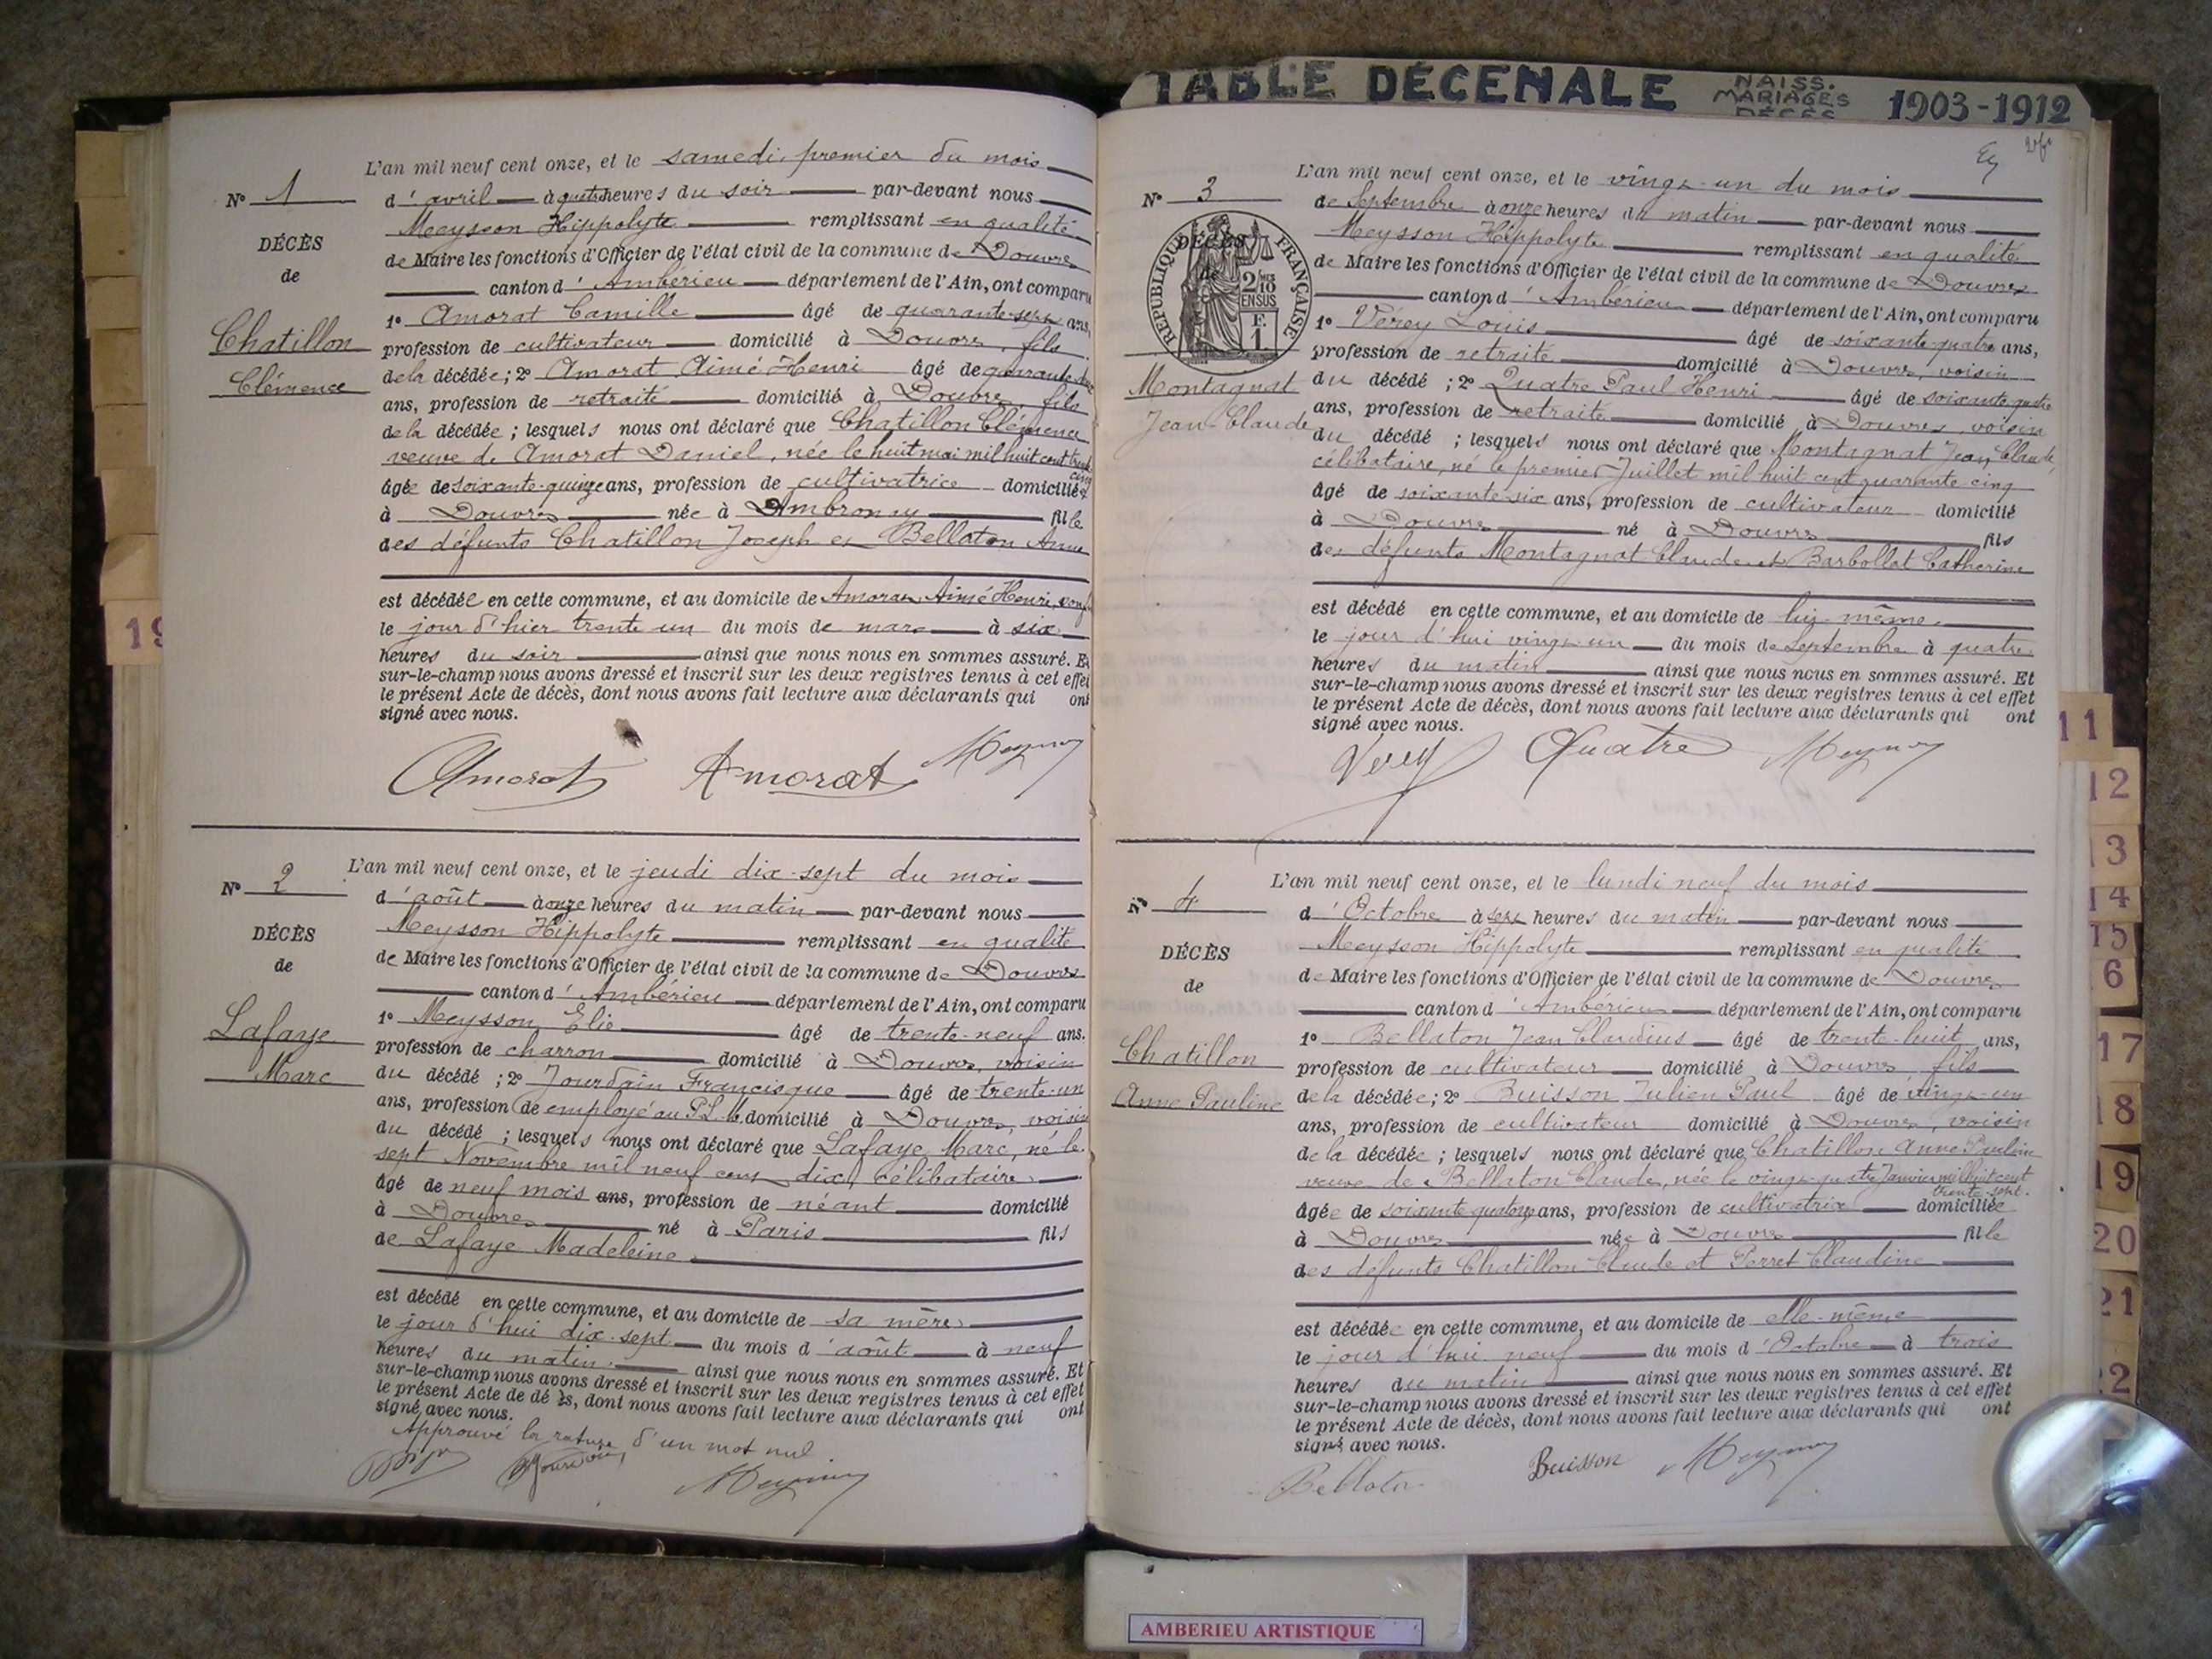 TABLE DÉCENALE NAISS. MARIAGES DÉCÈS 1903-1912
N° 1
DÉCÈS
de
Chatillon
Clémence
L'an mil neuf cent onze, et le samedi, premier du mois
d'avril à quatre heures du soir par-devant nous
Meysson Hippolyte remplissant en qualité
de Maire les fonctions d'Officier de l'état civil de la commune de Douvres
canton d'Ambérieu département de l'Ain, ont comparu
1° Amorat Camille âgé de quarante-sept ans,
profession de cultivateur domicilié à Douvres, fils
de la décédée; 2° Amorat Aimé Henri âgé de quarante
ans, profession de retraité domicilié à Douvres, fils
de la décédée; lesquels nous ont déclaré que Chatillon Clémence
veuve de Amorat Daniel, née le huit mai mil huit cent trente
cinq
âgée de soixante-quinze ans, profession de cultivatrice domiciliée
à Douvres née à Ambronay fille
des défunts Chatillon Joseph et Bellaton Anne
est décédée en cette commune, et au domicile de Amorat Aimé Henri, son fils
le jour d'hier trente un du mois de mars à six
heures du soir ainsi que nous nous en sommes assuré. Et
sur-le-champ nous avons dressé et inscrit sur les deux registres tenus à cet effet
le présent Acte de décès, dont nous avons fait lecture aux déclarants qui ont
signé avec nous.
Amorat Amorat Meysson
N° 2
DÉCÈS
de
Lafaye
Marc
L'an mil neuf cent onze, et le jeudi dix-sept du mois
d'août à onze heures du matin par-devant nous
Meysson Hippolyte remplissant en qualité
de Maire les fonctions d'Officier de l'état civil de la commune de Douvres
canton d'Ambérieu département de l'Ain, ont comparu
1° Meysson Elie âgé de trente-neuf ans.
profession de charron domicilié à Douvres, voisin
du décédé; 2° Jourdain Francisque âgé de trente-un
ans, profession de employé au P.L.M. domicilié à Douvres, voisin
du décédé; lesquels nous ont déclaré que Lafaye Marc, né le
sept Novembre mil neuf cent dix, célibataire
âgé de neuf mois ans, profession de néant domicilié
à Douvres né à Paris fils
de Lafaye Madeleine
est décédé en cette commune, et au domicile de sa mère
le jour d'hui dix-sept du mois d'août à neuf
heures du matin ainsi que nous nous en sommes assuré. Et
sur-le-champ nous avons dressé et inscrit sur les deux registres tenus à cet effet
le présent Acte de décès, dont nous avons fait lecture aux déclarants qui ont
signé avec nous.
Approuvé la rature d'un mot nul
Jourdain Meysson
N° 3
DÉCÈS
de
RÉPUBLIQUE FRANÇAISE
2/10 EN SUS
F. 1.
Montagnat
Jean Claude
L'an mil neuf cent onze, et le vingt-un du mois
de Septembre à onze heures du matin par-devant nous
Meysson Hippolyte remplissant en qualité
de Maire les fonctions d'Officier de l'état civil de la commune de Douvres
canton d'Ambérieu département de l'Ain, ont comparu
1° Vérey Louis âgé de soixante-quatre ans,
profession de retraité domicilié à Douvres, voisin
du décédé; 2° Quatre Paul Henri âgé de soixante-quatre
ans, profession de retraité domicilié à Douvres, voisin
du décédé; lesquels nous ont déclaré que Montagnat Jean Claude,
célibataire, né le premier Juillet mil huit cent quarante cinq
âgé de soixante-six ans, profession de cultivateur domicilié
à Douvres né à Douvres fils
des défunts Montagnat Claude et Barbollat Catherine
est décédé en cette commune, et au domicile de lui-même
le jour d'hui vingt-un du mois de Septembre à quatre
heures du matin ainsi que nous nous en sommes assuré. Et
sur-le-champ nous avons dressé et inscrit sur les deux registres tenus à cet effet
le présent Acte de décès, dont nous avons fait lecture aux déclarants qui ont
signé avec nous.
Verey Quatre Meysson
N° 4
DÉCÈS
de
Chatillon
Anne Pauline
L'an mil neuf cent onze, et le lundi neuf du mois
d'Octobre à sept heures du matin par-devant nous
Meysson Hippolyte remplissant en qualité
de Maire les fonctions d'Officier de l'état civil de la commune de Douvres
canton d'Ambérieu département de l'Ain, ont comparu
1° Bellaton Jean Claudius âgé de trente-huit ans,
profession de cultivateur domicilié à Douvres, fils
de la décédée; 2° Buisson Julien Paul âgé de vingt-un
ans, profession de cultivateur domicilié à Douvres, voisin
de la décédée; lesquels nous ont déclaré que Chatillon Anne Pauline
veuve de Bellaton Claude, née le vingt-quatre Janvier mil huit cent
trente-sept.
âgée de soixante quatorze ans, profession de cultivatrice domiciliée
à Douvres née à Douvres fille
des défunts Chatillon Claude et Perret Claudine
est décédée en cette commune, et au domicile de elle-même
le jour d'hui neuf du mois d'Octobre à trois
heures du matin ainsi que nous nous en sommes assuré. Et
sur-le-champ nous avons dressé et inscrit sur les deux registres tenus à cet effet
le présent Acte de décès, dont nous avons fait lecture aux déclarants qui ont
signé avec nous.
Bellaton Buisson Meysson
19
11
12
13
14
15
6
17
18
19
20
21
22
AMBERIEU ARTISTIQUE